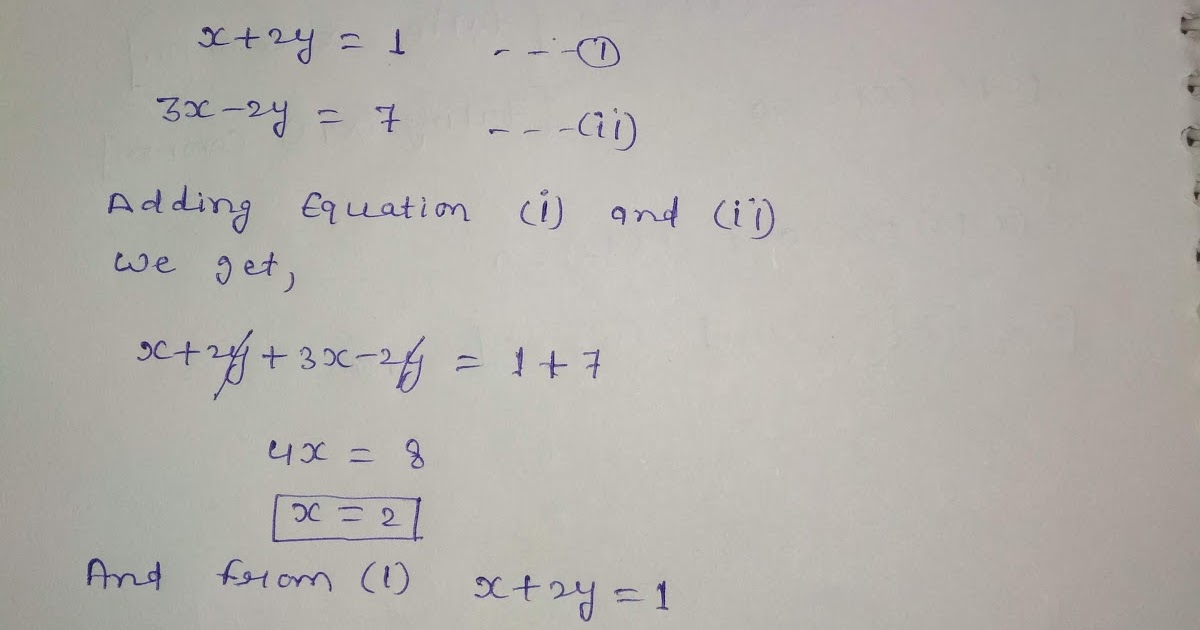 x+2y = 1 - - - (1)
3x-2y = 7 - - - (ii)
Adding Equation (i) and (ii)
we get,
x+2y+3x-2y = 1+7
4x = 8
x = 2
And from (1) x+2y=1